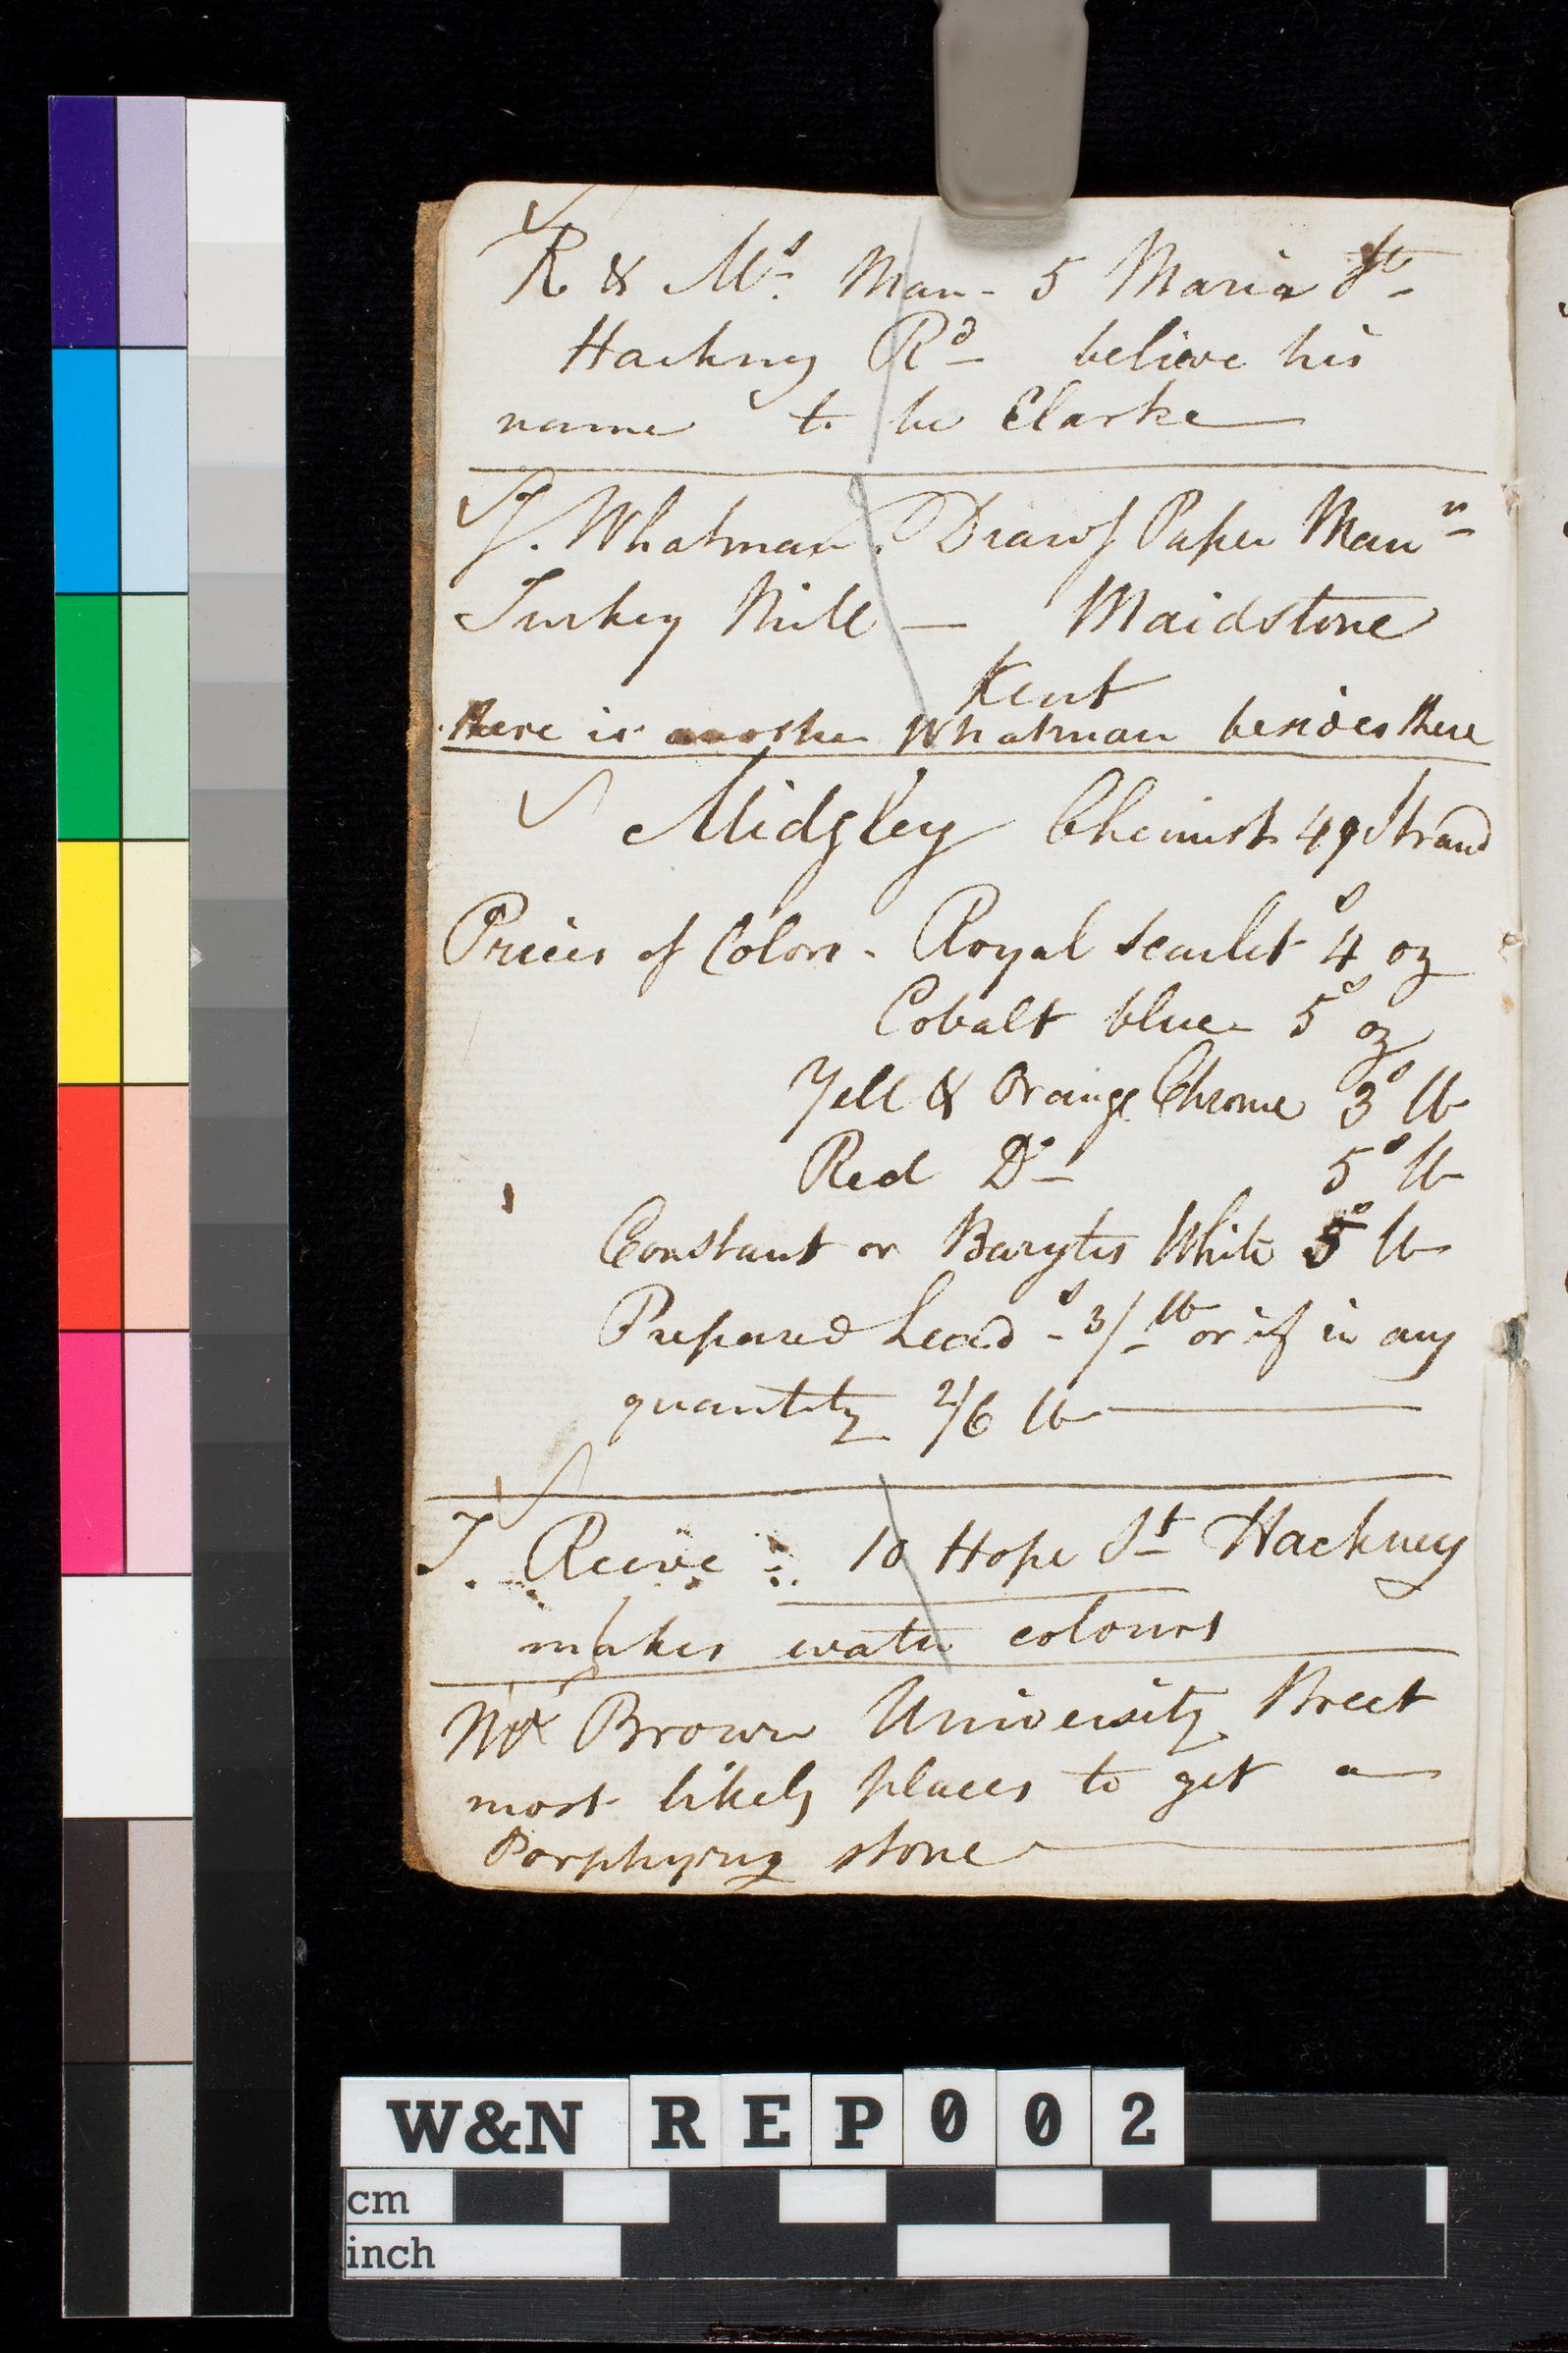 R & Ms. Man - 5 Maria St -
Hackny Rd - believe his
name to be Clarke
J. Whatman. Drawg Paper Man
Turkey Mill — Maidstone
Kent
there is another Whatman besides there
Midgley Chemist 49 Strand
Prices of Colors - Royal Scarlet 4s oz
Cobalt blue - 5s oz
Yell & Orange Chrome 3s lb
Red Do - 5s lb
Constant or Barytes White 5s lb
Prepared Lead - s 3/- lb or if in any
quantity 2/6 lb —
T. Reeve : 10 Hope St Hackney
makes water colours
Brown University Street
most likely places to get a
Porphyry stone
W&N REP002
cm
inch